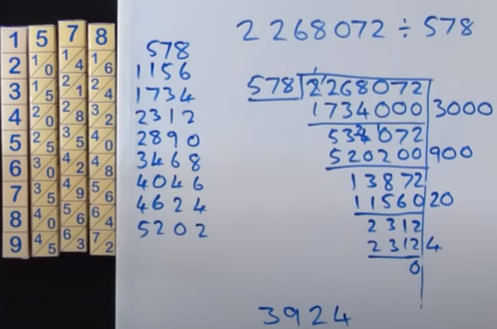 1 5 7 8
2 1/0 1/4 1/6
3 1/5 2/1 2/4
4 2/0 2/8 3/2
5 2/5 3/5 4/0
6 3/0 4/2 4/8
7 3/5 4/9 5/6
8 4/0 5/6 6/4
9 4/5 6/3 7/2
578
1156
1734
2312
2890
3468
4046
4624
5202
2268072 ÷ 578
578 2268072
1734000 3000
534072
520200 900
13872
11560 20
2312
2312 4
0
3924